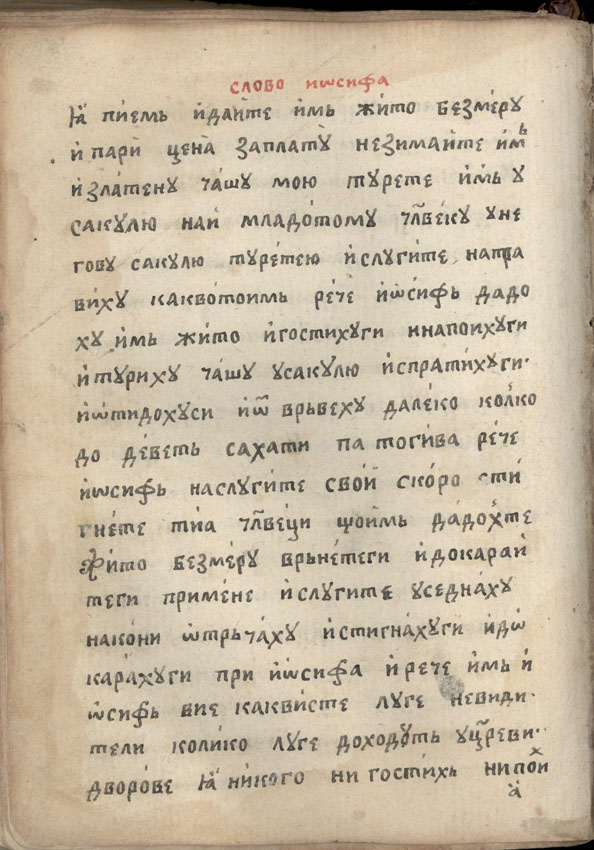 слово иѡсифа
ꙗ҆ пи́емь и҆дайте и҆мь жи́то безме́ру
и҆ пари̏ цена̏ запла́ту незима́йте и҆мь
и҆ зла́тену ча́шу мою ту́рете и҆мь у
саку́лю най младо́тому чл҃ве́ку уне
гову саку́лю туре́тею и҆слуги́те напра
ви́ху какво́тоимь ре́че и҆ѡ́сифь дадо
ху и҆мь жи́то и҆гости́хуги инапои́хуги
и҆ ту́риху ча́шу усаку́лю и҆спрати́хуги·
и҆ѡтидохуси и҆ѡ҃ врьвеху дале́ко ко́лко
до де́веть саха́ти па тоги́ва ре́че
и҆ѡсифь наслуги́те сво́й ско́ро сти
гне́те ти́а чл҃ве́ци щои́мь дадо́хте
жи́то безме́ру врьне́теги и҆дока́рай
теги приме́не и҆слуги́те уседна́ху
нако́ни ѡтрьча́ху и҆стигна́хуги и҆дѡ
кара́хуги при и҆ѡ́сифа и҆ ре́че и҆мь и҆
ѡ́сифь вие какви́сте луге невиди·
тели коли́ко лу́ге дохо́дуть уцр҃еви·
дворо́ве ꙗ҆ нико́го ни гости́хь нипои
а҆